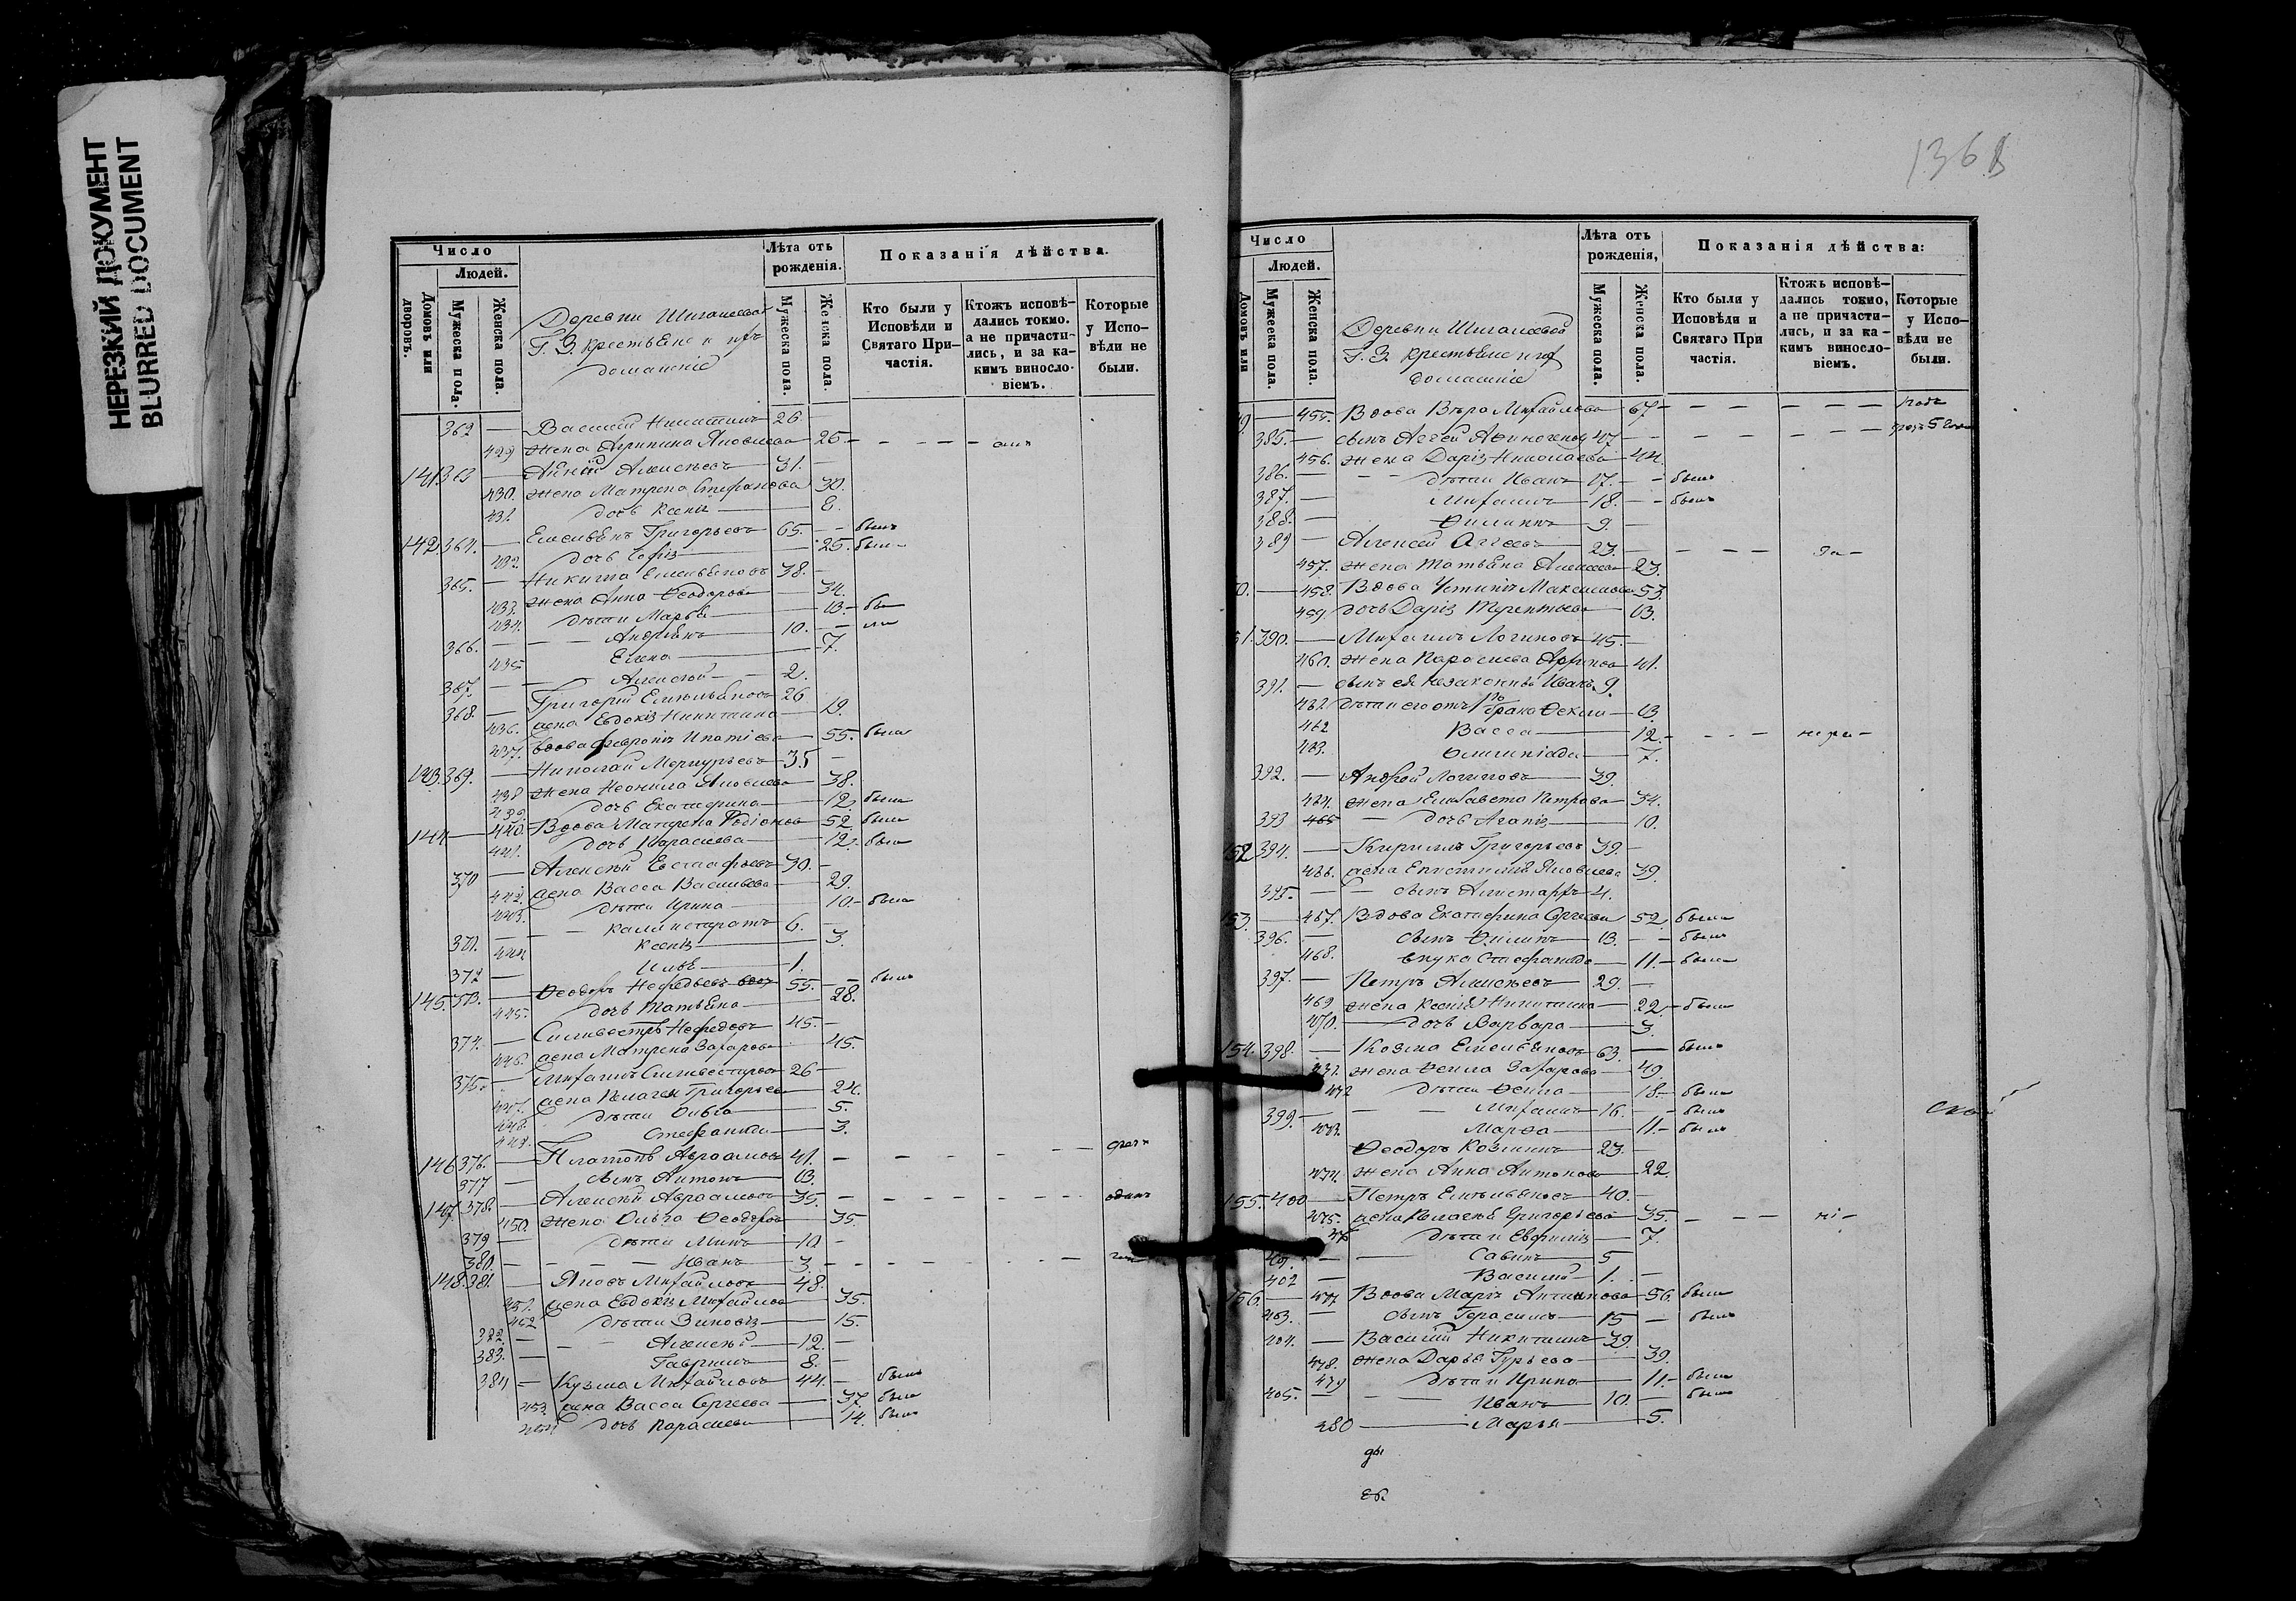 НЕРЕЗКИЙ ДОКУМЕНТ
BLURRED DOCUMENT
Число
Людей.
Домовъ или дворовъ.
Мужеска пола.
Женска пола.
Деревни
Г. З. крестьяне и ихъ
домашніе
Лѣта отъ рожденія.
Мужеска пола.
Женска пола.
Показанія дѣйства.
Кто были у Исповѣди и Святаго Причастія.
Ктожъ исповѣдались токмо. а не причастились, и за какимъ винословіемъ.
Которые у Исповѣди не были.
362 — Василій Никитинъ 26
429 жена Агрипина Яковлева 25
141 363 — Алексѣевъ 31.
430. жена Матрена Стефанова 30.
431. дочь Ксенія
142. 364. — Емельянъ Григорьевъ 65. былъ
432. дочь Софія 25. была
365. — Никита Емельяновъ 38.
433. жена Анна Ѳеодорова 34.
434. дѣти Марья 13.
366. — Андріянъ 10.
435 Елена 7.
367. — Алексѣй 2.
368. — Григорій Емельяновъ 26
436. жена Евдокія Никитина 19.
437. вдова Февронія Ипатіева 55. была
143. 369. — Николай Меркурьевъ 35
438 жена Неонила Яковлева 38.
439. дочь Екатерина 12. была
144 — 440. Вдова Матрена Родіонова 52. была
441. дочь Параскева 12. была
370 — Алексѣй Евстафьевъ 30.
442. жена Васса Васильева 29.
443. дѣти Ирина 10. была
371. — Калистратъ 6.
444 Ксенія 3.
372 — Илья 1.
145. 373. — Ѳеодоръ Нефедьевъ 55. былъ
445. дочь Татьяна 28.
374. — Сильвестръ Нефедовъ 45.
446. жена Матрена Захарова 45.
375. — Михаилъ Сильвестровъ 26
447. жена Пелагея Григорьева 24.
448. дѣти Ольга 5.
449. Стефанида 3.
146 376. — Платонъ Авраамовъ 41.
377 — сынъ Антонъ 13.
147 378. — Алексѣй Авраамовъ 35. одинъ
450. жена Ольга Ѳеодорова 35.
379 — дѣти Минъ 10
380. — Иванъ 3.
148. 381. — Яковъ Михайловъ 48.
451. жена Евдокія Михайлова 35.
452 дѣти Зиновія 15.
382. — Алексѣй 12.
383. — Гавріилъ 8.
384 — Кузма Михайловъ 44. былъ
453. жена Васса Сергеева 37. была
454 дочь Параскева 14. была
136
Число
Людей.
Домовъ или
Мужеска пола.
Женска пола.
Деревни
Г. З. крестьяне и их
домашніе
Лѣта отъ рожденія,
Мужеска пола.
Женска пола.
Показанія дѣйства:
Кто были у Исповѣди и Святаго При частія.
Ктожь исповѣдались токмо, а не причастились, и за какимъ винословіемъ.
Которые у Исповѣди не были.
9. — 455. Вдова Вѣра Михайлова 67
385. — сынъ Аггей 47
456. жена Дарія Николаева 44.
386. — дѣти Иванъ 17. былъ
387. — Михаилъ 18. былъ
388. — Филиппъ 9.
389 — Алексѣй Аггеевъ 23.
457. жена Татьяна Алексеева 23.
0. — 458. Вдова Устинія Максимова 53.
459. дочь Дарія Терентьева 13.
1. 390. — Михаилъ Логиновъ 45.
460. жена Параскева 41.
391. — сынъ ея незаконный Иванъ 9.
дѣти его отъ 1го брака Ѳекла 13.
462 Васса 12.
463. Олимпіада 7.
392. — Андрей Логиновъ 39.
464. жена Елисавета Петрова 34.
393 465 дочь Агапія 10.
152 394. — Кириллъ Григорьевъ 39.
466. жена Епистимія Яковлева 39.
395. — сынъ Алистархъ 4.
153. — 467. Вдова Екатерина Сергеева 52. была
396. — сынъ Филипъ 13. былъ
468. внука Стефанида 11. была
397. — Петръ Алексѣевъ 29.
469 жена Ксенія Никитина 22. была
470. дочь Варвара 3.
154. 398. — Козма Емельяновъ 63. былъ
471. жена Ѳекла Захарова 49.
472 дѣти Ѳекла 18. была
399. — Михаилъ 16. былъ
473. Марѳа 11. была
Ѳеодоръ Козминъ 23.
474. жена Анна Антонова 22.
155. 400 — Петръ Емельяновъ 40.
475. жена Пелагея Григорьева 35.
476 дѣти Евфимія 7.
401. — Савинъ 5
402 — Василій 1.
156. — 477 Вдова Марія 56. была
403. — сынъ Герасимъ 15 былъ
404. — Василій Никитинъ 39.
478. жена Дарья Гурьева 39.
479 дѣти Ирина 11. была
405. — Иванъ 10. былъ
480 Марья 5.